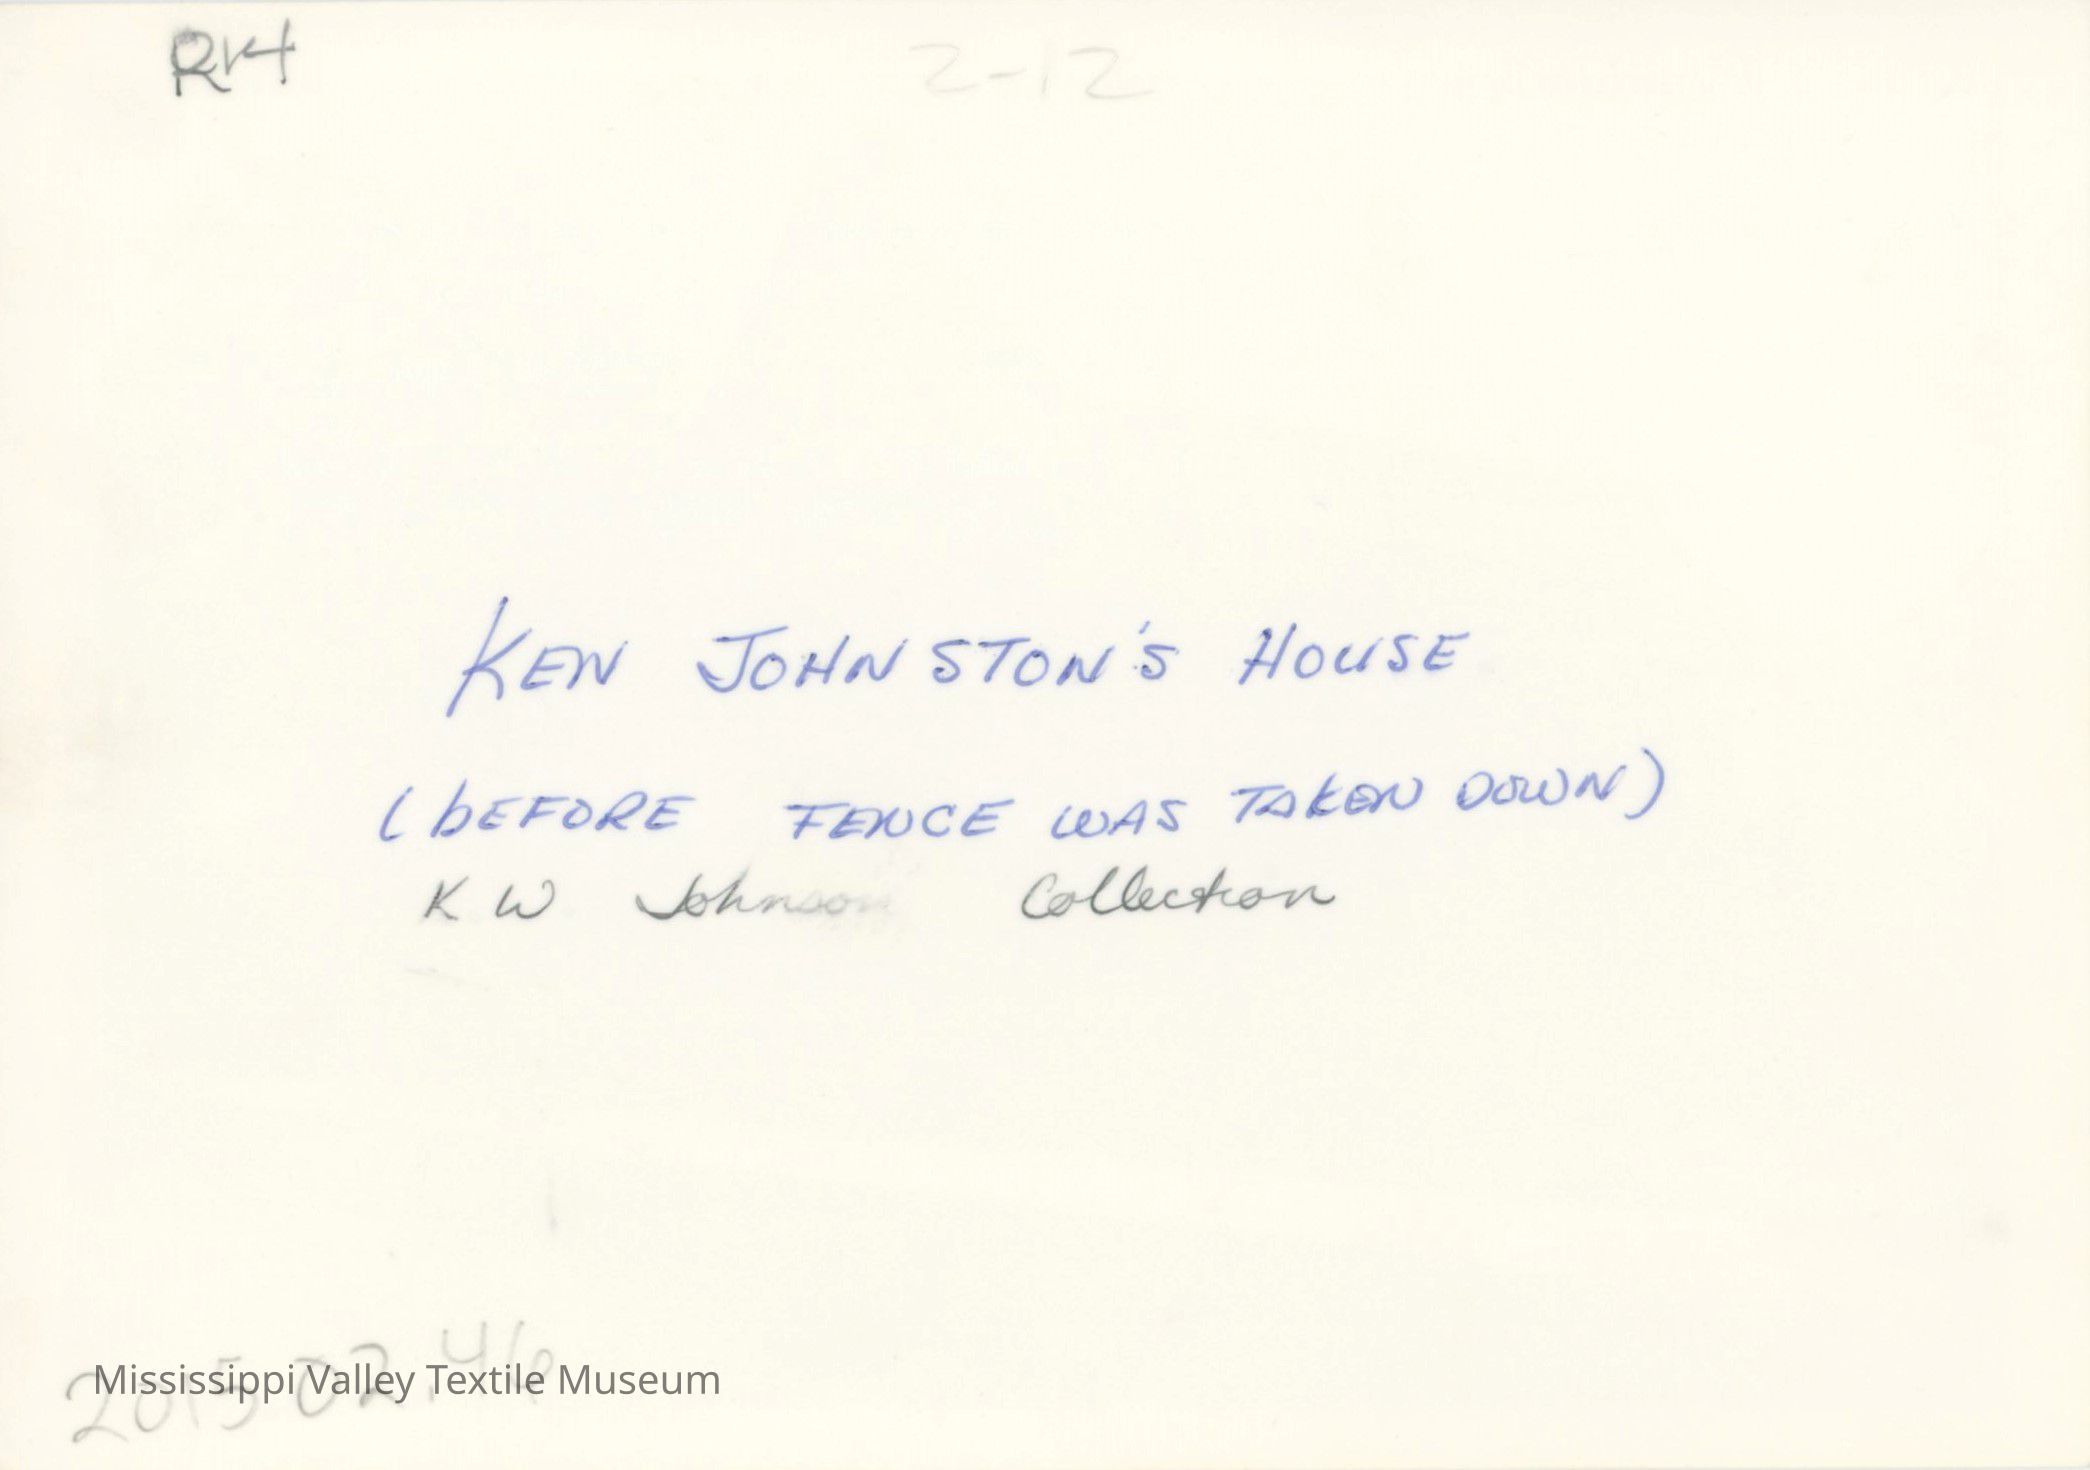 RV4
2-12
KEN JOHNSTON'S HOUSE
(bEFORE FENCE WAS TAKEN DOWN)
K W Johnson Collection
2015.02.46
Mississippi Valley Textile Museum